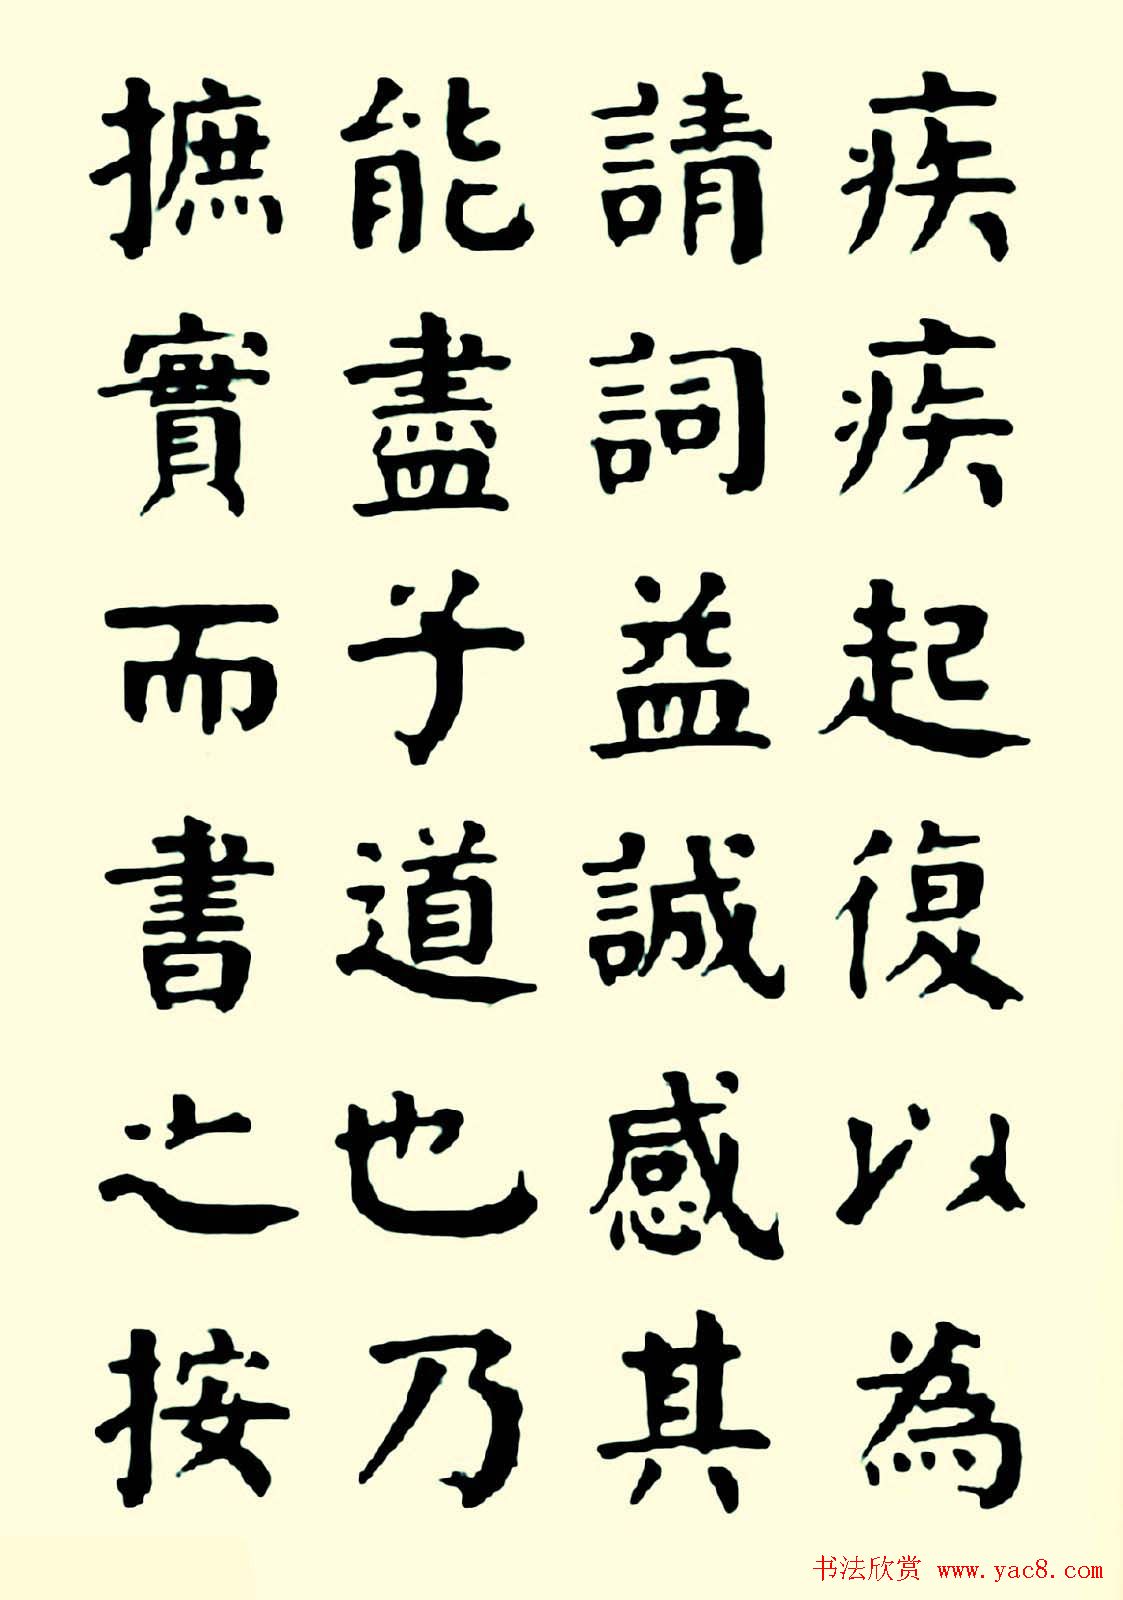 疾疾起復以為
請詞益誠感其
能盡子道也乃
摭實而書之按
书法欣赏 www.yac8.com